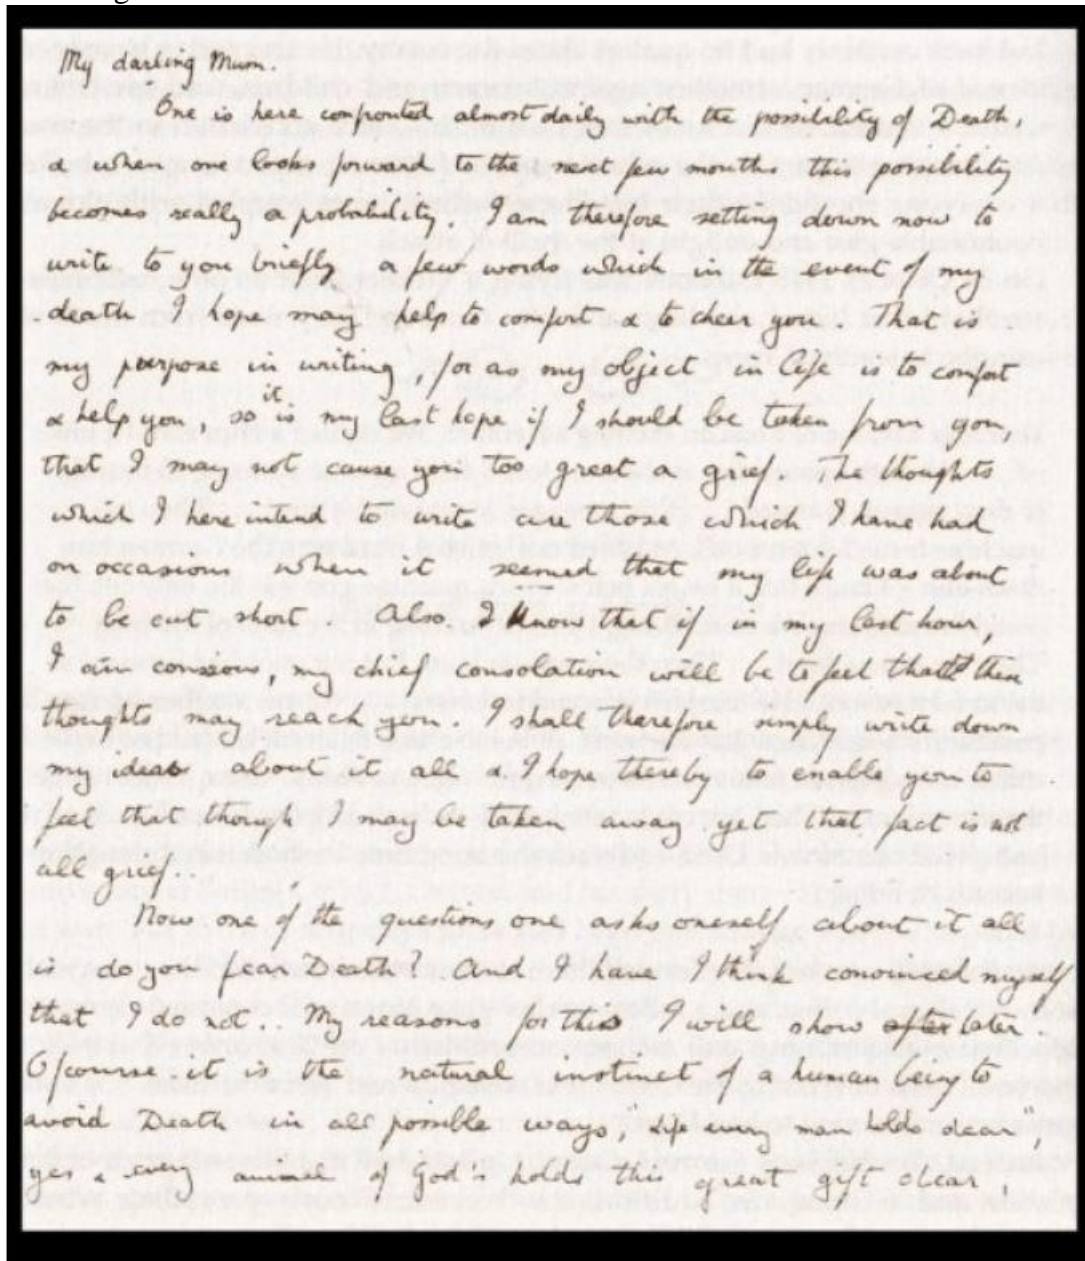 My darling Mum.
One is here confronted almost daily with the possibility of Death,
& when one looks forward to the next few months this possibility
becomes really a probability. I am therefore setting down now to
write to you briefly a few words which in the event of my
death I hope may help to comfort & to cheer you. That is
my purpose in writing, for as my object in life is to comfort
& help you, so it is my last hope if I should be taken from you
that I may not cause you too great a grief. The thoughts
which I here intend to write are those which I have had
on occasions when it seemed that my life was about
to be cut short. Also, I know that if in my last hour,
I am conscious, my chief consolation will be to feel that these
thoughts may reach you. I shall therefore simply write down
my ideas about it all & I hope thereby to enable you to
feel that though I may be taken away yet that fact is not
all grief.
Now one of the questions one asks oneself about it all
is do you fear Death? And I have I think convinced myself
that I do not. My reasons for this I will show after later
Of course it is the natural instinct of a human being to
avoid Death in all possible ways; "life every man holds dear",
yes & every animal of God's holds this great gift dear,